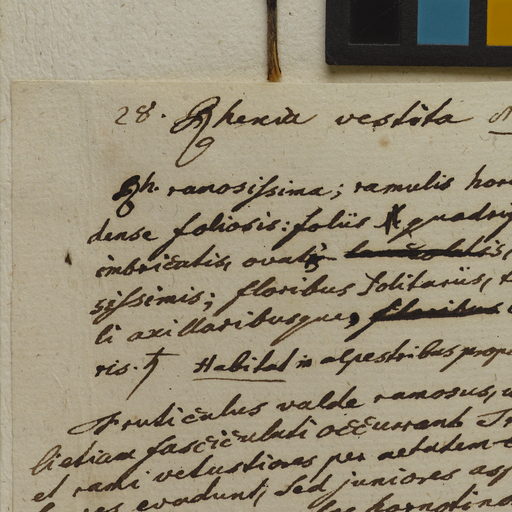 28. Rhexia vestita
Rh. ramosissima; ramulis
dense foliosis: foliis
imbricatis, ovatis
ssissimis; floribus solitariis,
li axillaribusque,
ris. ♄ Habitat in alpestribus
Fruticulus valde ramosus,
li etiam fasciculati occurrant
et rami vetustiores per aetatem
evadunt, sed juniores